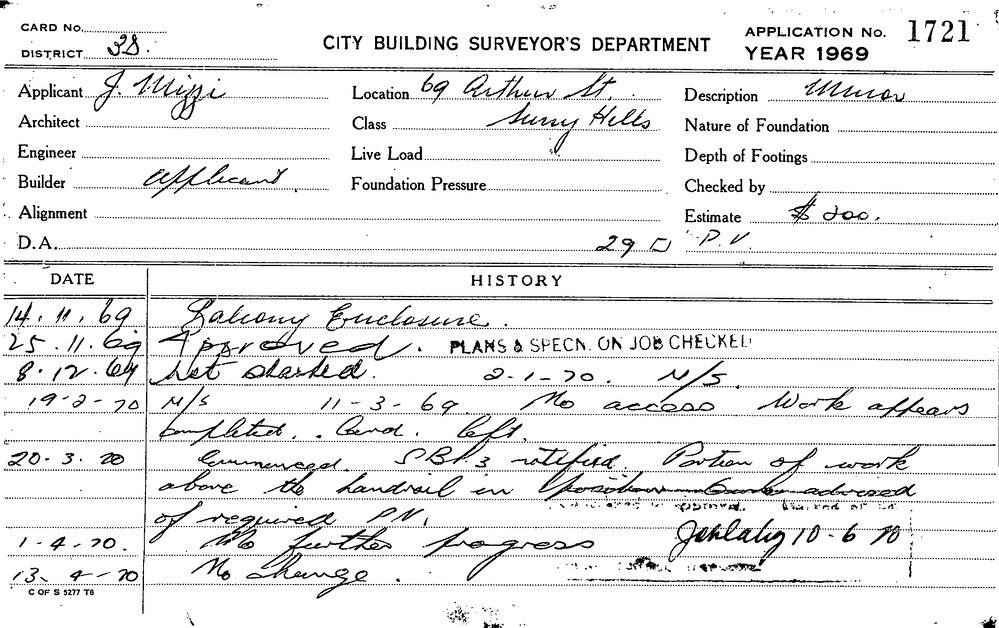 CARD No.
DISTRICT
CITY BUILDING SURVEYOR'S DEPARTMENT
APPLICATION No. 1721
YEAR 1969
Applicant J. Mizzi
Location 69 Arthur St.
Description Minor
Architect
Class Surry Hills
Nature of Foundation
Engineer
Live Load
Depth of Footings
Builder Applicant
Foundation Pressure
Checked by
Alignment
Estimate $ 200.
D.A. 29 P.V.
DATE HISTORY
14.11.69 Balcony Enclosure.
25.11.69 Approved. PLANS & SPECN. ON JOB CHECKED
8.12.69 Not started. 2-1-70. N/S.
19-2-70 N/S 11-3-69. No access Work appears
completed. Card. left.
20.3.70 Commenced. notified. Portion of work
above the handrail in position advised
of required P.N.
1-4-70. No further progress 10-6 70
13-4-70 No Change.
C OF S 5277 T6